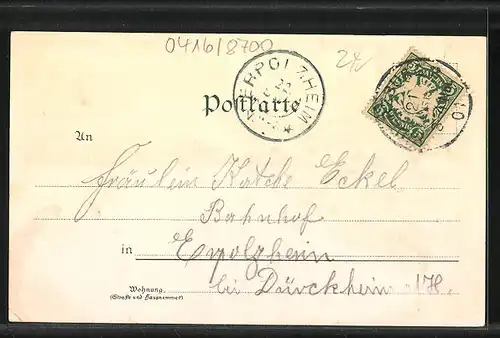 0416/8700
24
ERPOLZHEIM
Postkarte
An
Fräulein Katchen Eckel
Bahnhof
in Erpolzheim
Wohnung.
(Straße und Hausnummer)
bei Dürckheim a/H.